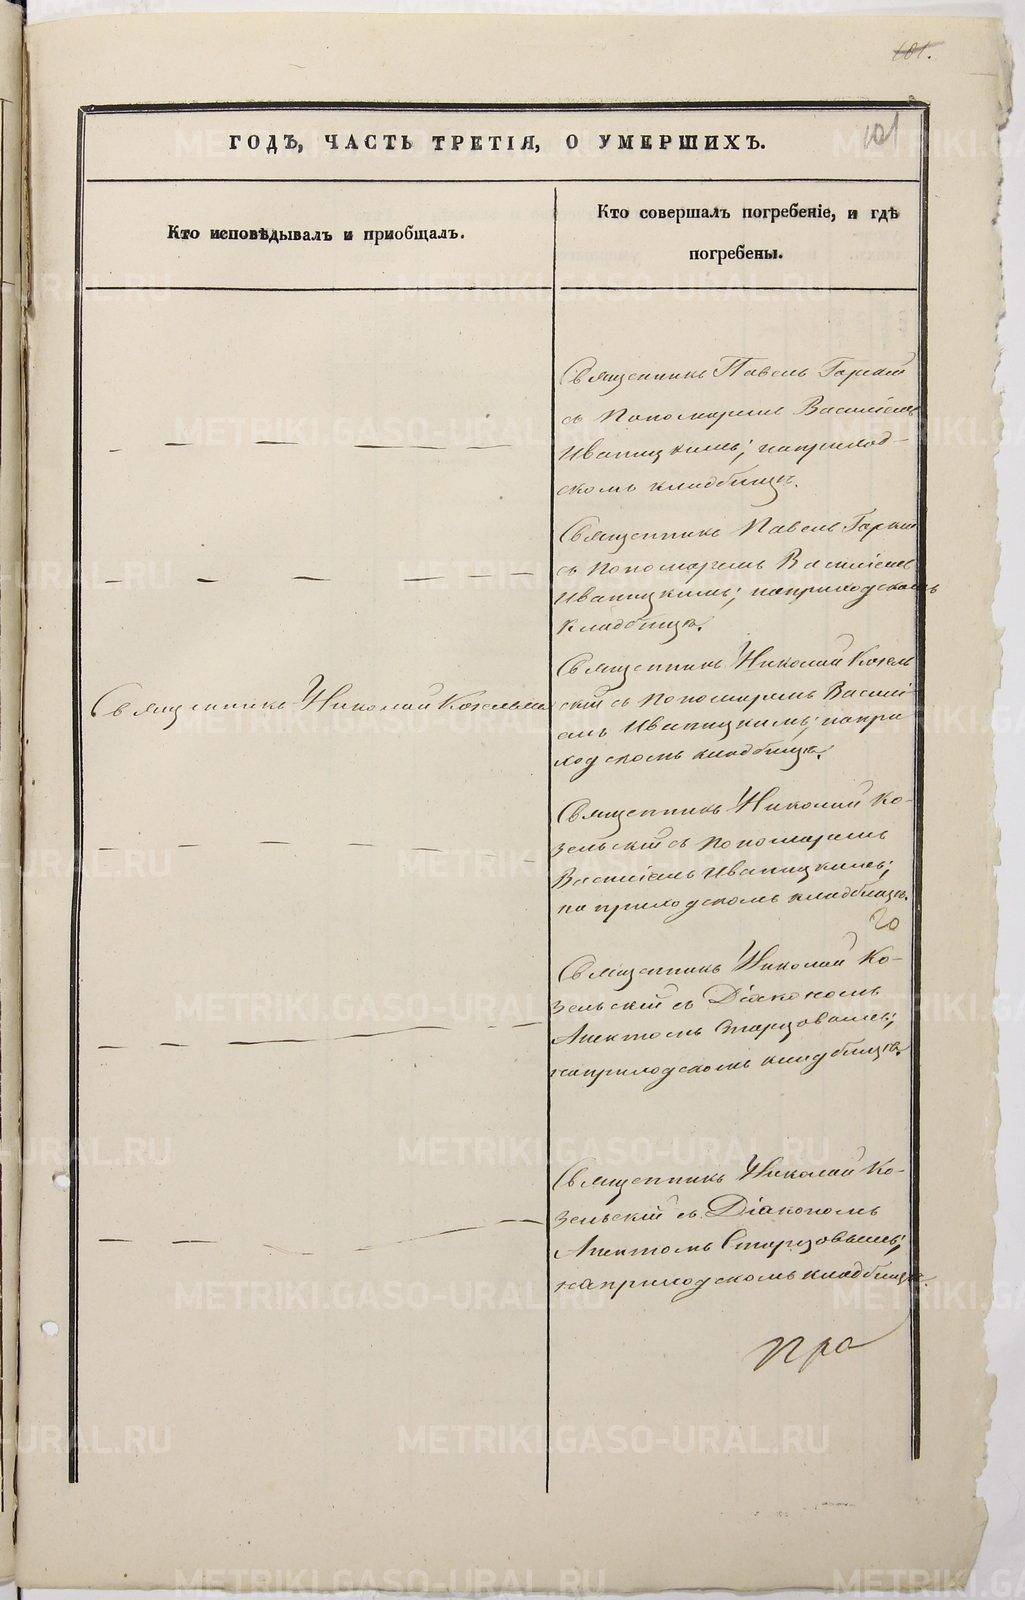 101.
101
ГОДЪ, ЧАСТЬ ТРЕТІЯ, О УМЕРШИХЪ.
Кто исповѣдывалъ и приобщалъ.
Кто совершалъ погребеніе, и гдѣ
погребены.
Священникъ Павелъ Горный
съ Пономаремъ Василіемъ
Иваницкимъ; на приход-
скомъ кладбищѣ.
Священникъ Павелъ
съ Пономаремъ Василіемъ
Иваницкимъ; на приходскомъ
кладбищѣ.
Священникъ Николай
Священникъ Николай Козель
скій съ Пономаремъ Василі
емъ Иваницкимъ; на при
ходскомъ кладбищѣ.
Священникъ Николай Ко-
зельскій съ Пономаремъ
Василіемъ Иваницкимъ;
на приходскомъ кладбищѣ.
20
Священникъ Николай Ко-
зельскій съ Діакономъ
на приходскомъ кладбищѣ.
Священникъ Николай Ко-
зельскій съ Діакономъ
на приходскомъ кладбищѣ.
METRIKI.GASO-URAL.RU